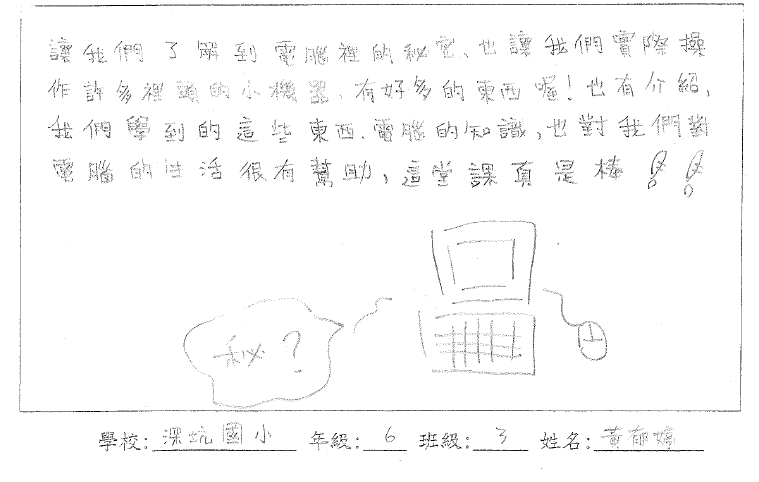 讓我們了解到電腦裡的秘密、也讓我們實際操
作許多裡頭的小機器、有好多的東西喔！也有介紹，
我們學到的這些東西、電腦的知識，也對我們對
電腦的生活很有幫助，這堂課真是棒！！
秘？
學校：深坑國小 年級：6 班級：3 姓名：黃郁婷